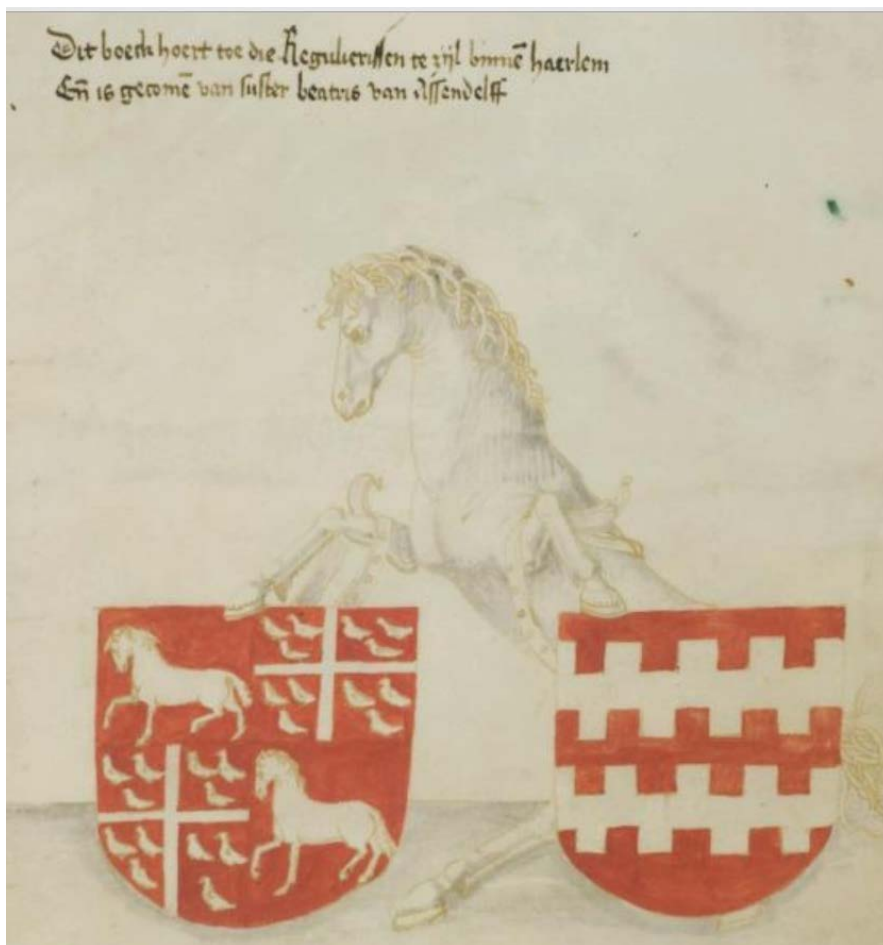 Dit boeck hoert toe die Regulierissen te zijl binnē haerlem
Eñ is gecomē van suster beatris van Assendelff